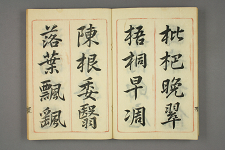 枇杷晚翠
梧桐早凋
陳根委翳
落葉飄颻